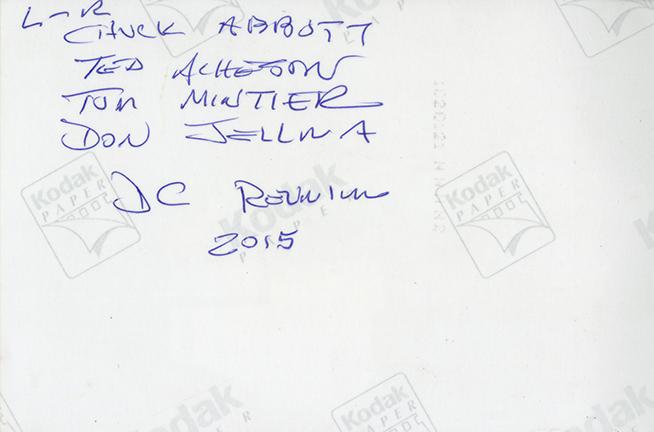 L-R
CHUCK ABBOTT
TED ACHESON
TOM MINTIER
DON JELLMA
DC REUNION
2015
Kodak
PAPER
Kodak
PAPER
Kodak
PAPER
Kodak
Kodak
PAPER